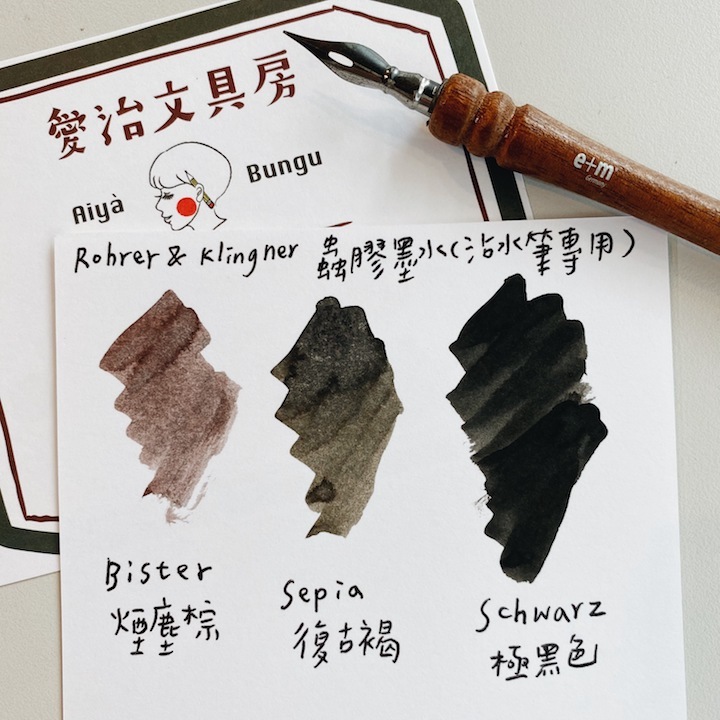 愛治文具房
Aiyà Bungu
e+m
Germany
Rohrer & Klingner 蟲膠墨水(沾水筆專用)
Bister
煙塵棕
Sepia
復古褐
Schwarz
極黑色